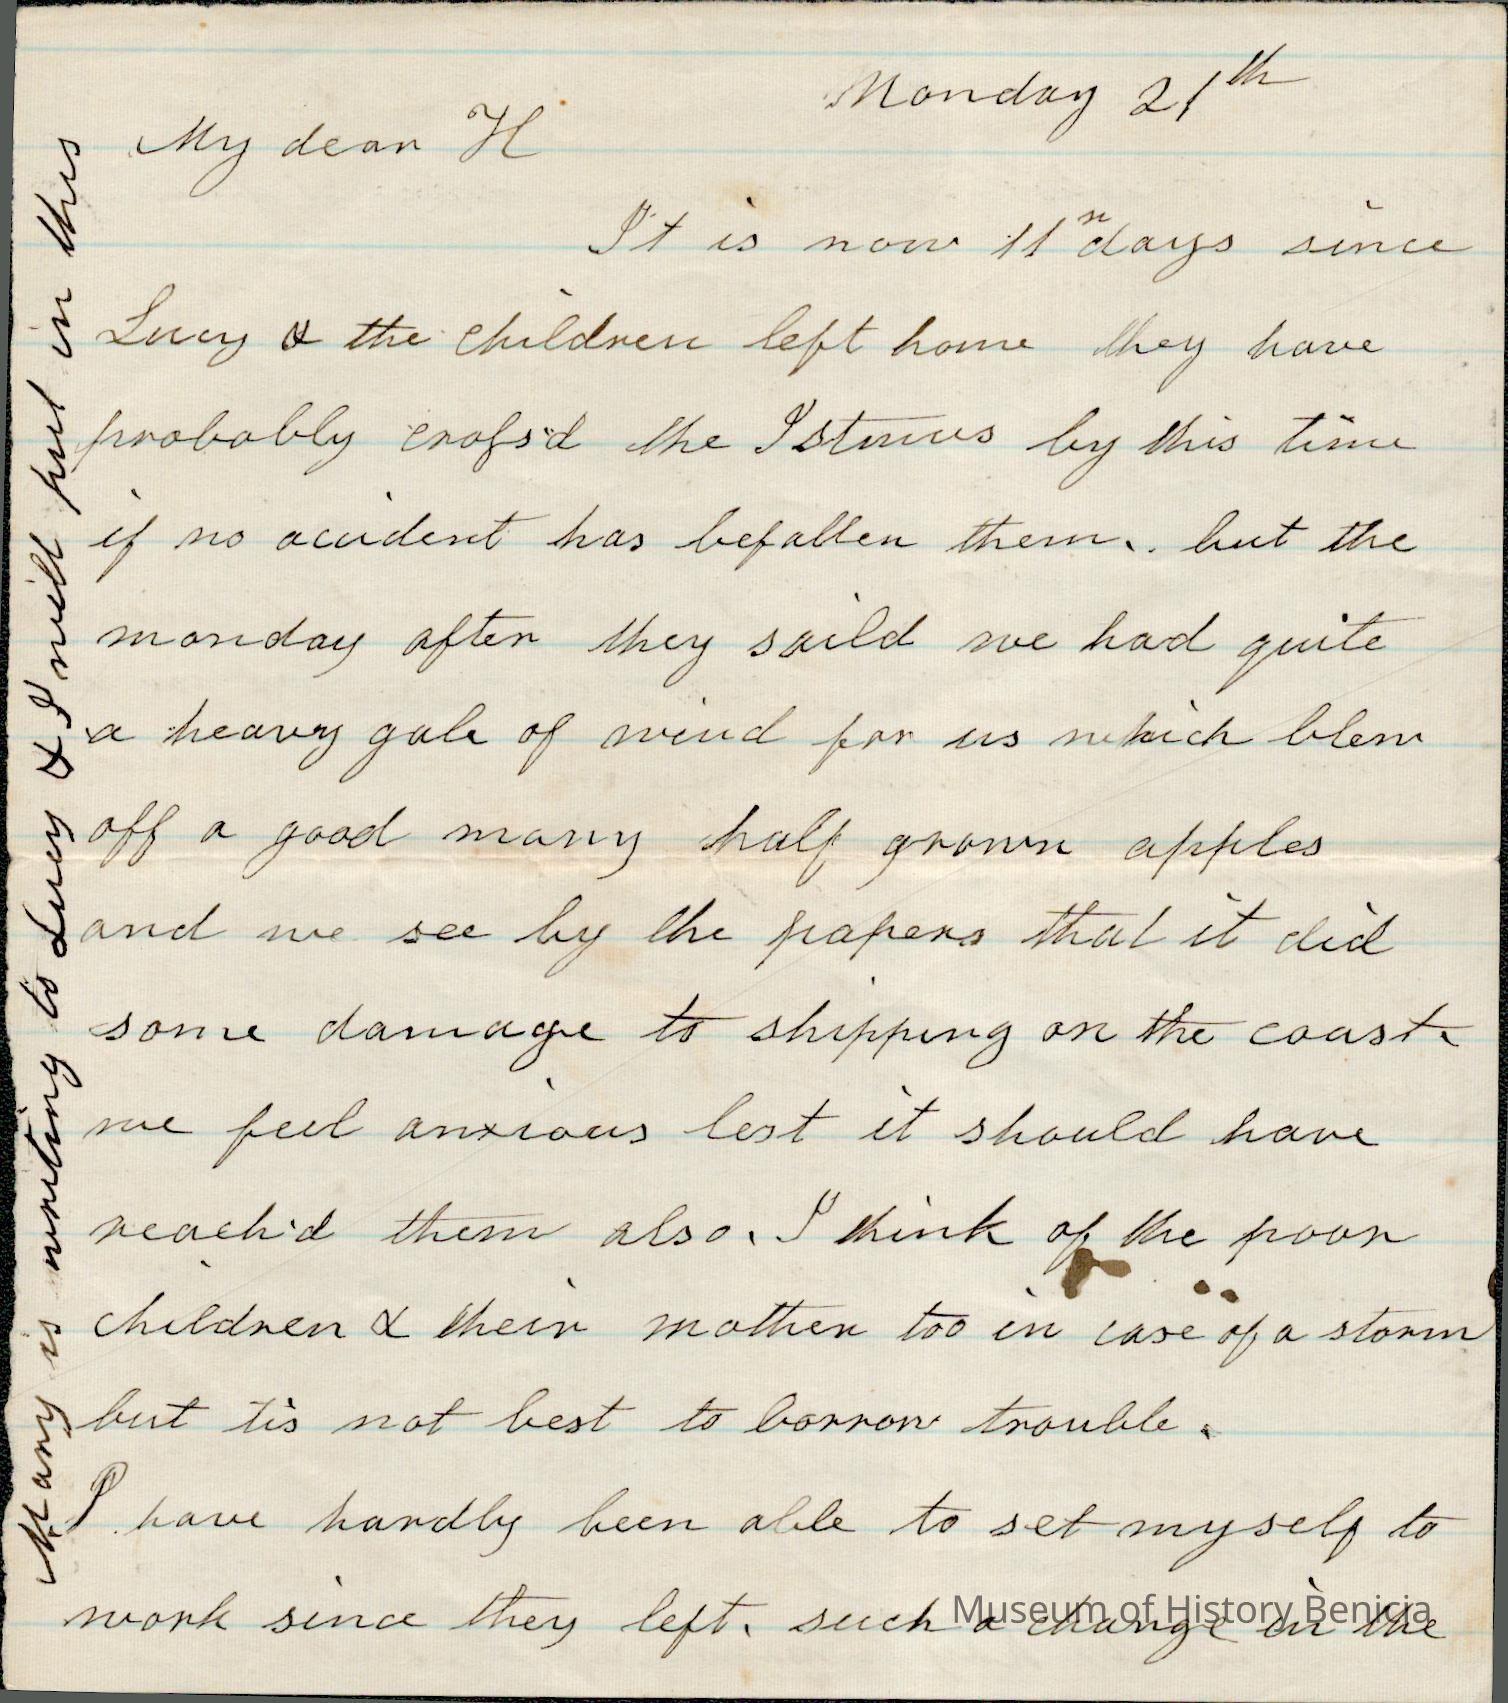 Monday 21th
My dear H
It is now 11 days since
Lucy & the children left home they have
probably crossd the Istmus by this time
if no accident has befallen them.. but the
monday after they saild we had quite
a heavy gale of wind for us which blew
off a good many half grown apples
and we see by the papers that it did
some damage to shipping on the coast.
we feel anxious lest it should have
reach'd them also. I think of the poor
children & their mother too in case of a storm
but tis not best to borrow trouble.
I have hardly been able to set myself to
work since they left. such a change in the
Mary is writing to Lucy & I will put in this
Museum of History Benicia